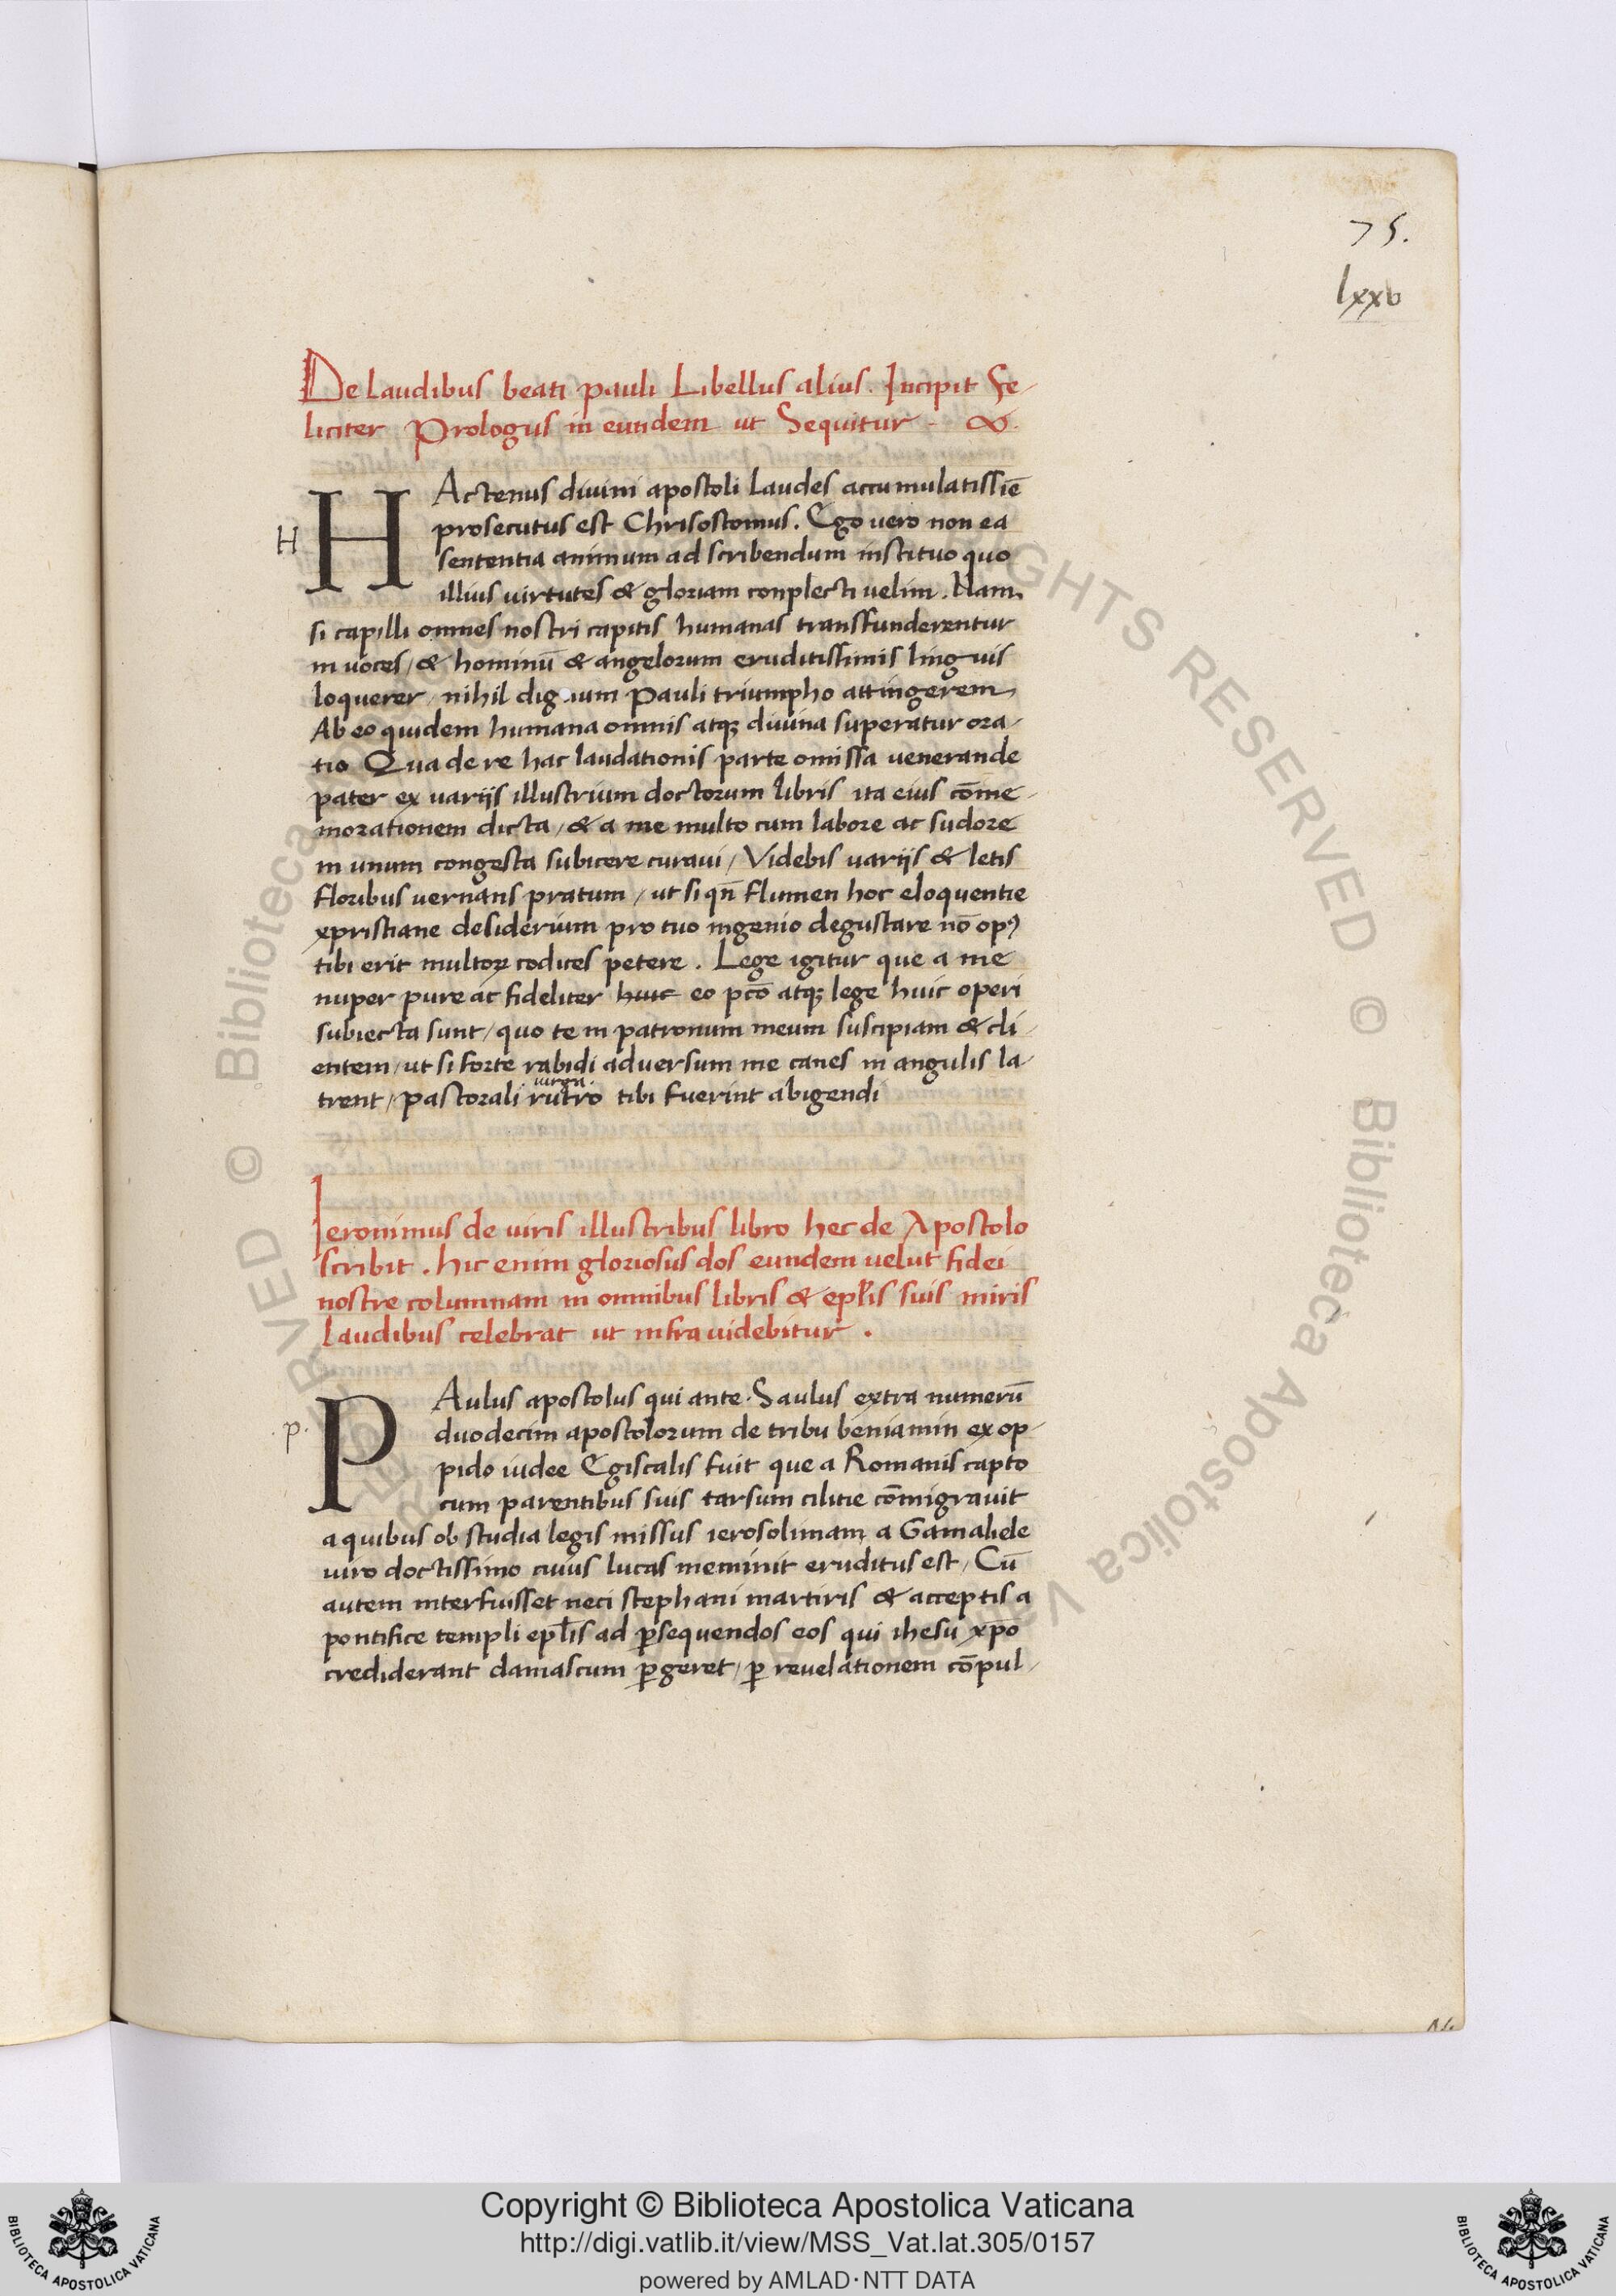 75.
lxxv
De laudibus beati pauli Libellus alius. Incipit Fe-
liciter Prologus in eundem ut Sequitur -
H
HActenus divini apostoli laudes accumulatissiē
prosecutus est Chrisostomus. Ego vero non ea
sententia animum ad scribendum instituo quo
illius virtutes & gloriam conplecti velim. Nam
si capilli omnes nostri capitis humanas transfunderentur
in voces / & hominū & angelorum eruditissimis linguis
loquerer / nihil dignum Pauli triumpho attingerem
Ab eo quidem humana omnis atqꝫ divina superatur ora-
tio Qua de re hac laudationis parte omissa venerande
pater ex varijs illustrium doctorum libris ita eius cōme-
morationem dicta / & a me multo cum labore ac sudore
in unum congesta subicere curavi / Videbis varijs & letis
floribus vernans pratum / ut si qn̄ flumen hoc eloquentie
xpristiane desiderium pro tuo ingenio degustare nō opꝰ
tibi erit multoꝝ codices petere. Lege igitur que a me
nuper pure ac fideliter huic eo pcō atqꝫ lege huic operi
subiecta sunt / quo te in patronum meum suscipiam & cli-
entem / ut si forte rabidi adversum me canes in angulis la-
virga
trent / pastorali rutro tibi fuerint abigendi
Ieronimus de viris illustribus libro hec de Apostolo
scribit. Hic enim gloriosus dos eundem velut fidei
nostre columnam in omnibus libris & eplis suis miris
laudibus celebrat ut infra videbitur.
p.
PAulus apostolus qui ante Saulus extra numerū
duodecim apostolorum de tribu beniamin ex op-
pido iudee Egiscalis fuit que a Romanis capto
cum parentibus suis tarsum cilitie cōmigravit
a quibus ob studia legis missus ierosolimam a Gamaliele
viro doctissimo cuius lucas meminit eruditus est / Cū
autem interfuisset neci stephani martiris & acceptis a
pontifice templi eplis ad ꝑsequendos eos qui ihesu xpō
crediderant damascum ꝑgeret / ꝑ revelationem cōpul-
RIGHTS RESERVED © Biblioteca Apostolica Vaticana
Copyright © Biblioteca Apostolica Vaticana
http://digi.vatlib.it/view/MSS_Vat.lat.305/0157
powered by AMLAD·NTT DATA
BIBLIOTECA APOSTOLICA VATICANA
BIBLIOTECA APOSTOLICA VATICANA